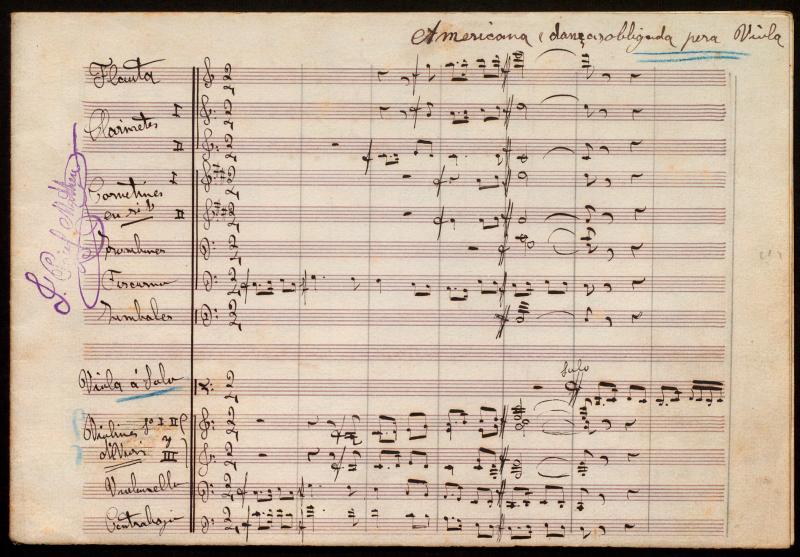 Americana o danza obligada pera Viola
Flauta
Clarinetes I
II
Cornetines I
en si b II
Trombones
Fiscorno
Timbales
solo
Viola á Solo
Violines 1º I II
y
III
Violoncello
Contrabajo